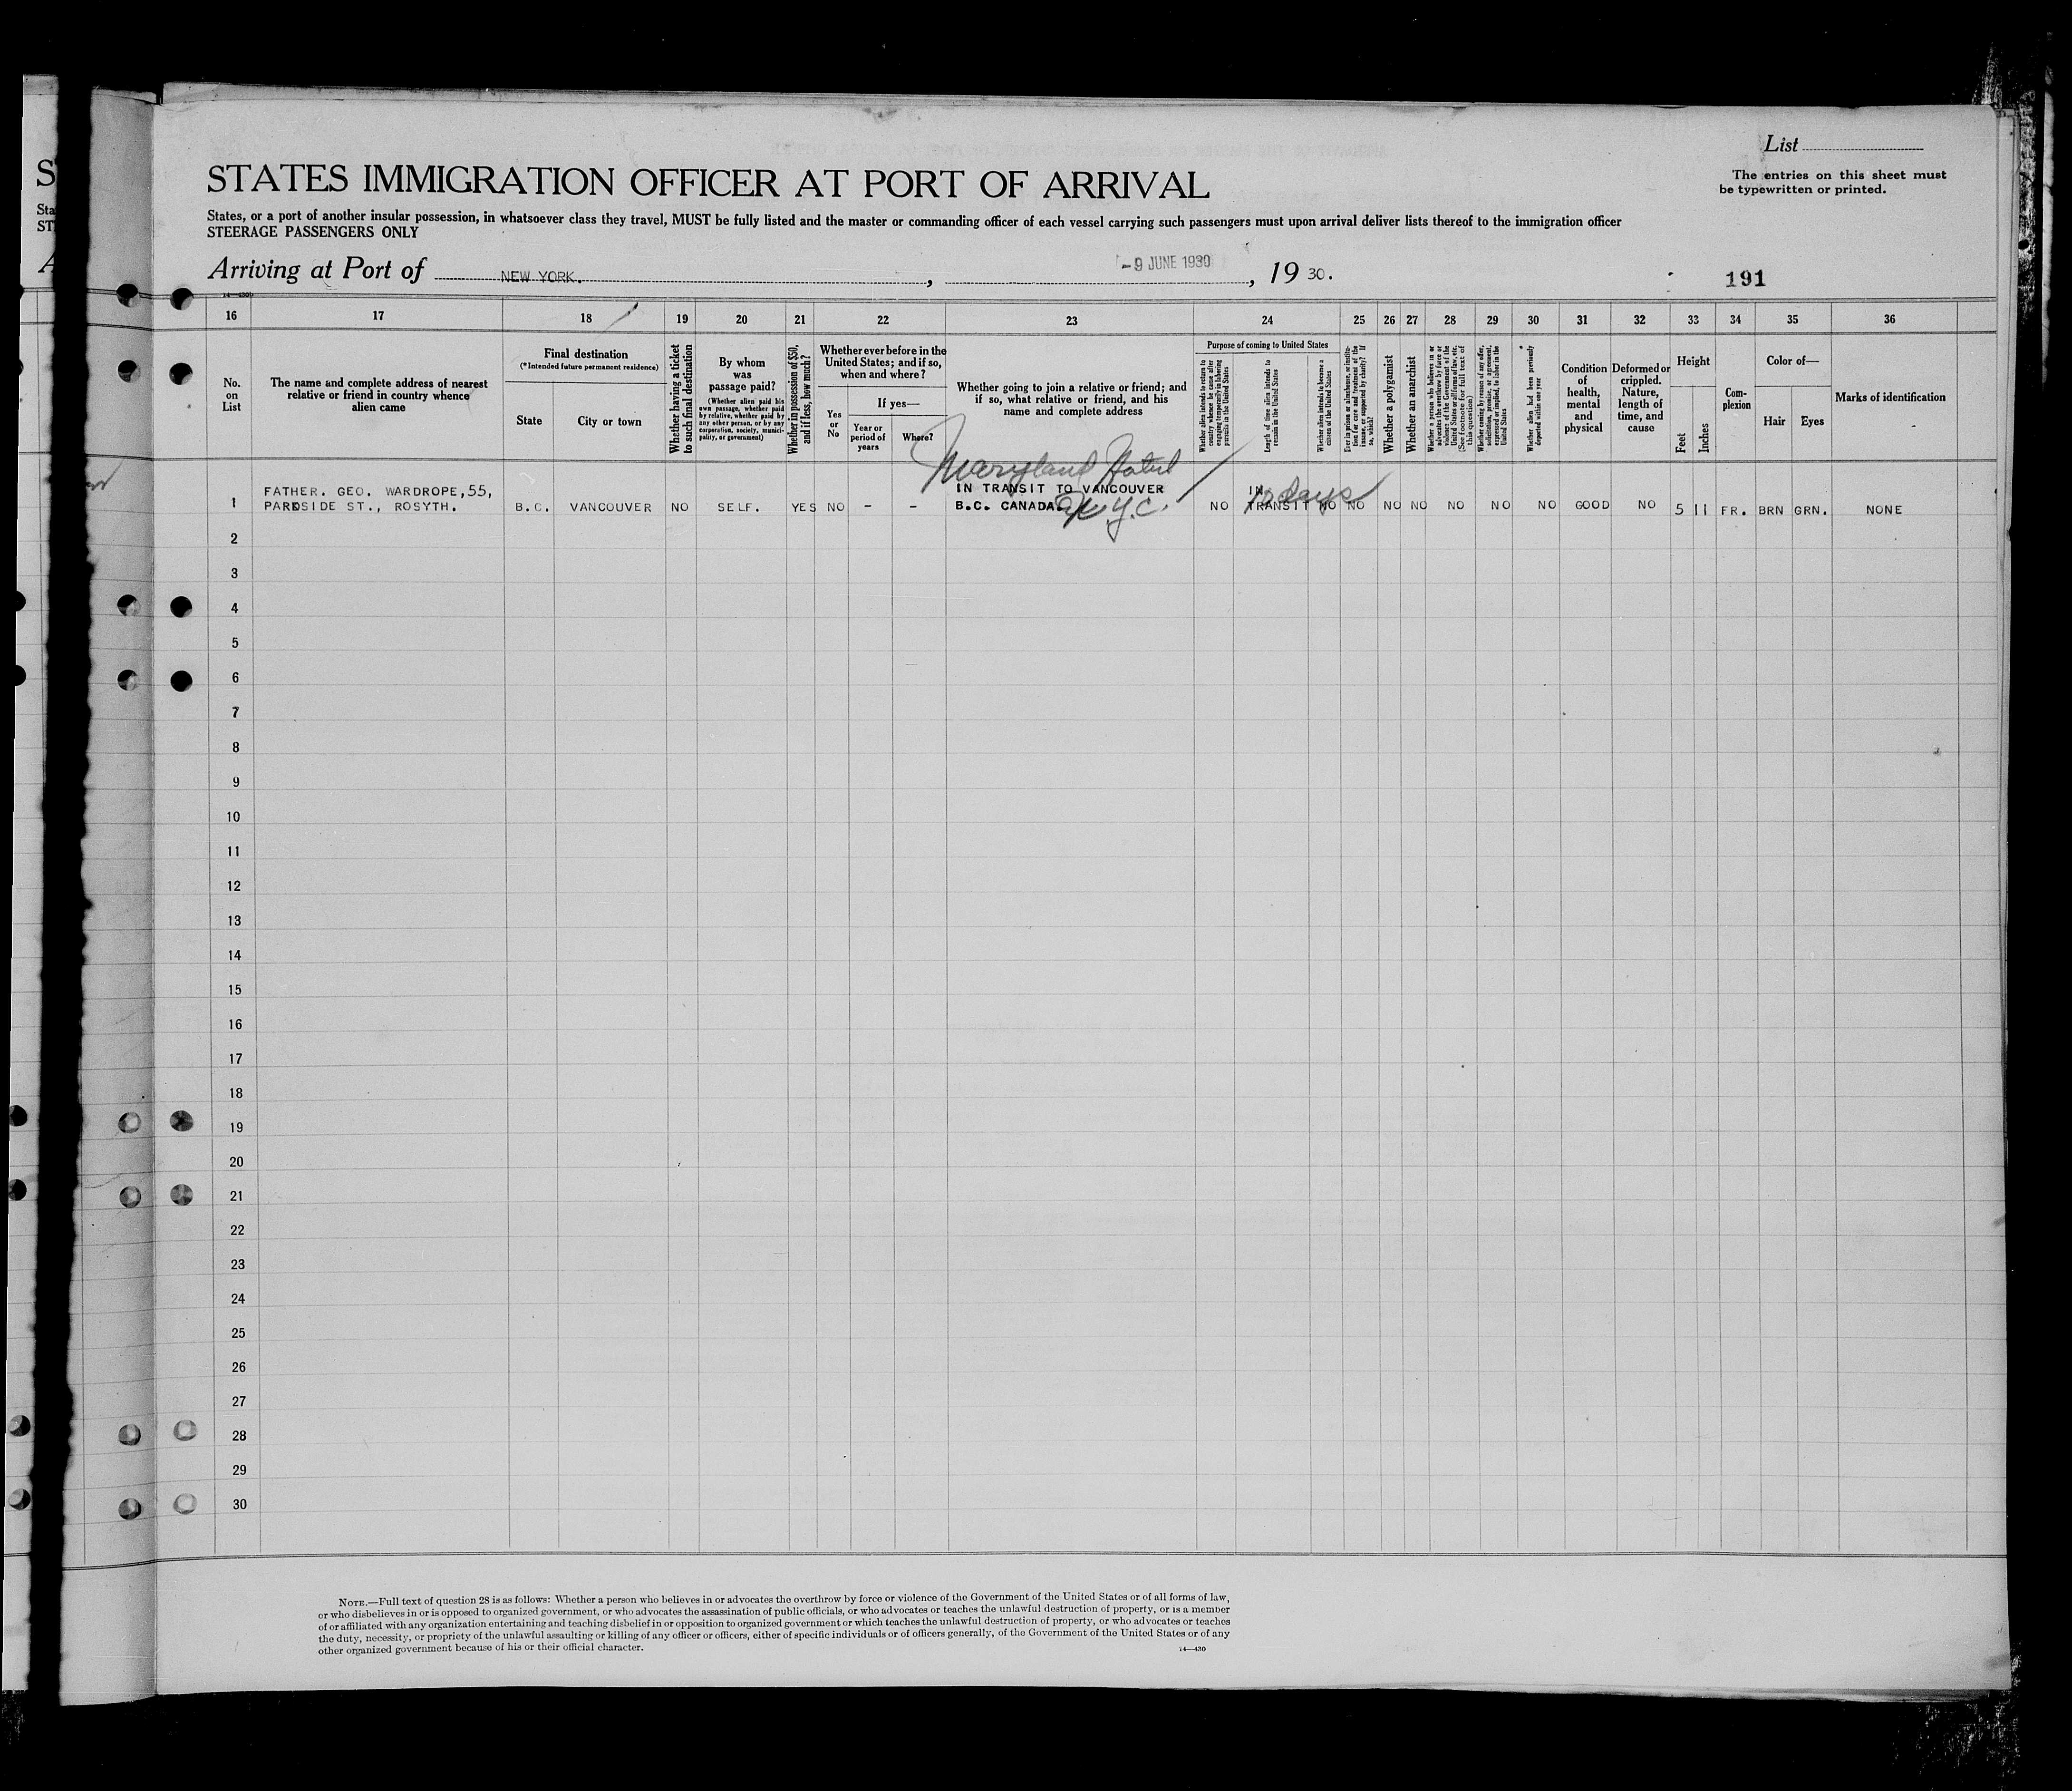 List
The entries on this sheet must
be typewritten or printed.
STATES IMMIGRATION OFFICER AT PORT OF ARRIVAL
States, or a port of another insular possession, in whatsoever class they travel, MUST be fully listed and the master or commanding officer of each vessel carrying such passengers must upon arrival deliver lists thereof to the immigration officer
STEERAGE PASSENGERS ONLY
Arriving at Port of NEW YORK. , -9 JUNE 1930 , 19 30.
191
16 17 18 19 20 21 22 23 24 25 26 27 28 29 30 31 32 33 34 35 36
No.
on
List
The name and complete address of nearest
relative or friend in country whence
alien came
Final destination
(*Intended future permanent residence)
State
City or town
Whether having a ticket
to such final destination
By whom
was
passage paid?
(Whether alien paid his
own passage, whether paid
by relative, whether paid by
any other person, or by any
corporation, society, munici-
pality, or government)
Whether in possession of $50,
and if less, how much?
Whether ever before in the
United States; and if so,
when and where?
Yes
or
No
If yes—
Year or
period of
years
Where?
Whether going to join a relative or friend; and
if so, what relative or friend, and his
name and complete address
Purpose of coming to United States
Whether alien intends to return to
country whence he came after
engaging temporarily in laboring
pursuits in the United States
Length of time alien intends to
remain in the United States
Whether alien intends to become a
citizen of the United States
Ever in prison or almshouse, or institu-
tion for care and treatment of the
insane, or supported by charity? If
so, which?
Whether a polygamist
Whether an anarchist
Whether a person who believes in or
advocates the overthrow by force or
violence of the Government of the
United States or all forms of law, etc.
(See footnote for full text of
this question)
Whether coming by reason of any offer,
solicitation, promise, or agreement,
expressed or implied, to labor in the
United States
Whether alien had been previously
deported within one year
Condition
of
health,
mental
and
physical
Deformed or
crippled.
Nature,
length of
time, and
cause
Height
Feet
Inches
Com-
plexion
Color of—
Hair
Eyes
Marks of identification
Maryland Hotel
N.Y.C.
10 days
1 FATHER. GEO. WARDROPE, 55,
PARKSIDE ST., ROSYTH.
B.C. VANCOUVER NO SELF. YES NO - -
IN TRANSIT TO VANCOUVER
B.C. CANADA.
NO
IN
TRANSIT
NO NO NO NO NO NO NO GOOD NO 5 11 FR. BRN GRN. NONE
2
3
4
5
6
7
8
9
10
11
12
13
14
15
16
17
18
19
20
21
22
23
24
25
26
27
28
29
30
NOTE.—Full text of question 28 is as follows: Whether a person who believes in or advocates the overthrow by force or violence of the Government of the United States or of all forms of law,
or who disbelieves in or is opposed to organized government, or who advocates the assassination of public officials, or who advocates or teaches the unlawful destruction of property, or is a member
of or affiliated with any organization entertaining and teaching disbelief in or opposition to organized government or which teaches the unlawful destruction of property, or who advocates or teaches
the duty, necessity, or propriety of the unlawful assaulting or killing of any officer or officers, either of specific individuals or of officers generally, of the Government of the United States or of any
other organized government because of his or their official character.
14—430